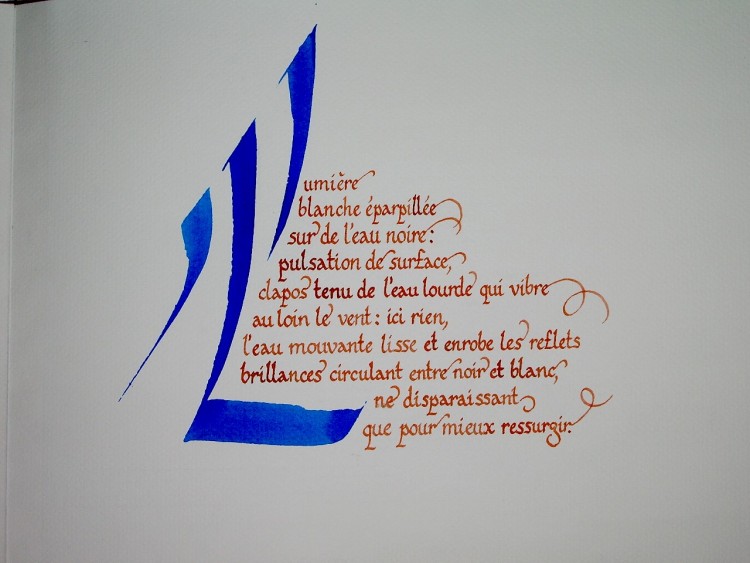 Lumière
blanche éparpillée
sur de l'eau noire :
pulsation de surface,
clapos tenu de l'eau lourde qui vibre
au loin le vent : ici rien,
l'eau mouvante lisse et enrobe les reflets
brillances circulant entre noir et blanc,
ne disparaissant
que pour mieux ressurgir.